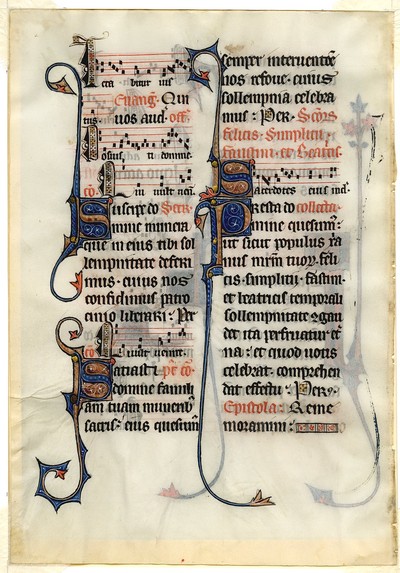 Leta bitur ius
Euang. Qui
uos aud. off.
Posuis ti domine
Suscipe do Secr.
mine munera
que in eius tibi sol
lempnitate deferi
mus. cuius nos
confidimus patro
cinio liberari. Per
co
Satiasti. p̄t cō
domine famili
am tuam
sacris. eius quesum
semper interuentiōe
nos refoue. cuius
sollempnia celebra
mus. Per. Scōꝝ
felicis. Simplicii.
faustini. et Beatric.
Sacerdotes eius ind.
Presta do collecta.
mine quesum̄.
ut sicut populus xp̄ia
nus mr̄m tuoꝝ. feli
cis. simplicii. faustin.
et beatricis temporali
sollempnitate cōgau
det. ita perfruatur et̄
na. et quod uotis
celebrat. comprehen
dat effectu. Per.
Epistola. Reme
moramini.